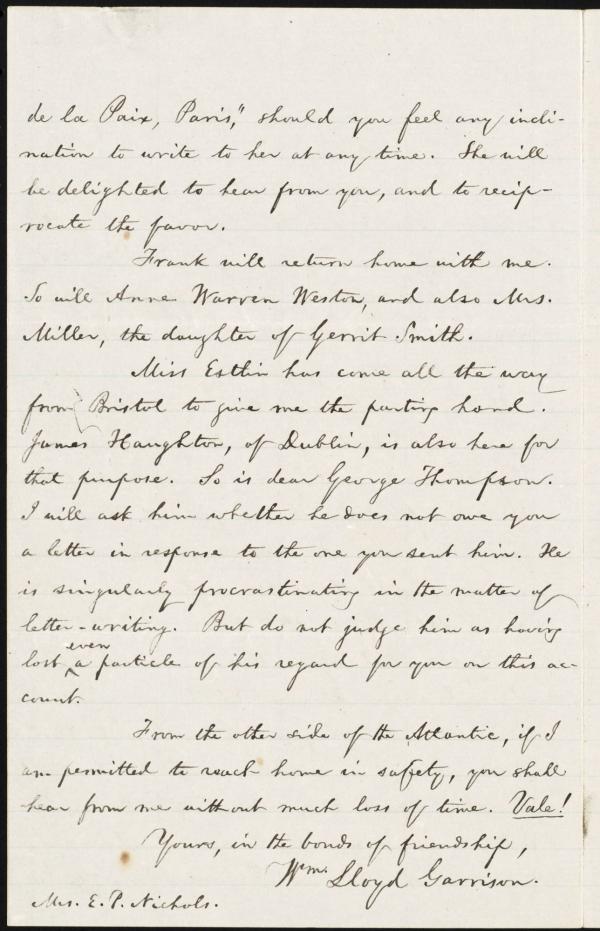 de la Paix, Paris," should you feel any incli-
nation to write to her at any time. She will
be delighted to hear from you, and to recip-
rocate the favor.
Frank will return home with me.
So will Anne Warren Weston, and also Mrs.
Miller, the daughter of Gerrit Smith.
Miss Estlin has come all the way
from Bristol to give me the parting hand.
James Haughton, of Dublin, is also here for
that purpose. So is dear George Thompson.
I will ask him whether he does not owe you
a letter in response to the one you sent him. He
is singularly procrastinating in the matter of
letter-writing. But do not judge him as having
lost even a particle of his regard for you on this ac-
count.
From the other side of the Atlantic, if I
am permitted to reach home in safety, you shall
hear from me without much loss of time. Vale!
Yours, in the bonds of friendship,
Wm. Lloyd Garrison.
Mrs. E. P. Nichols.